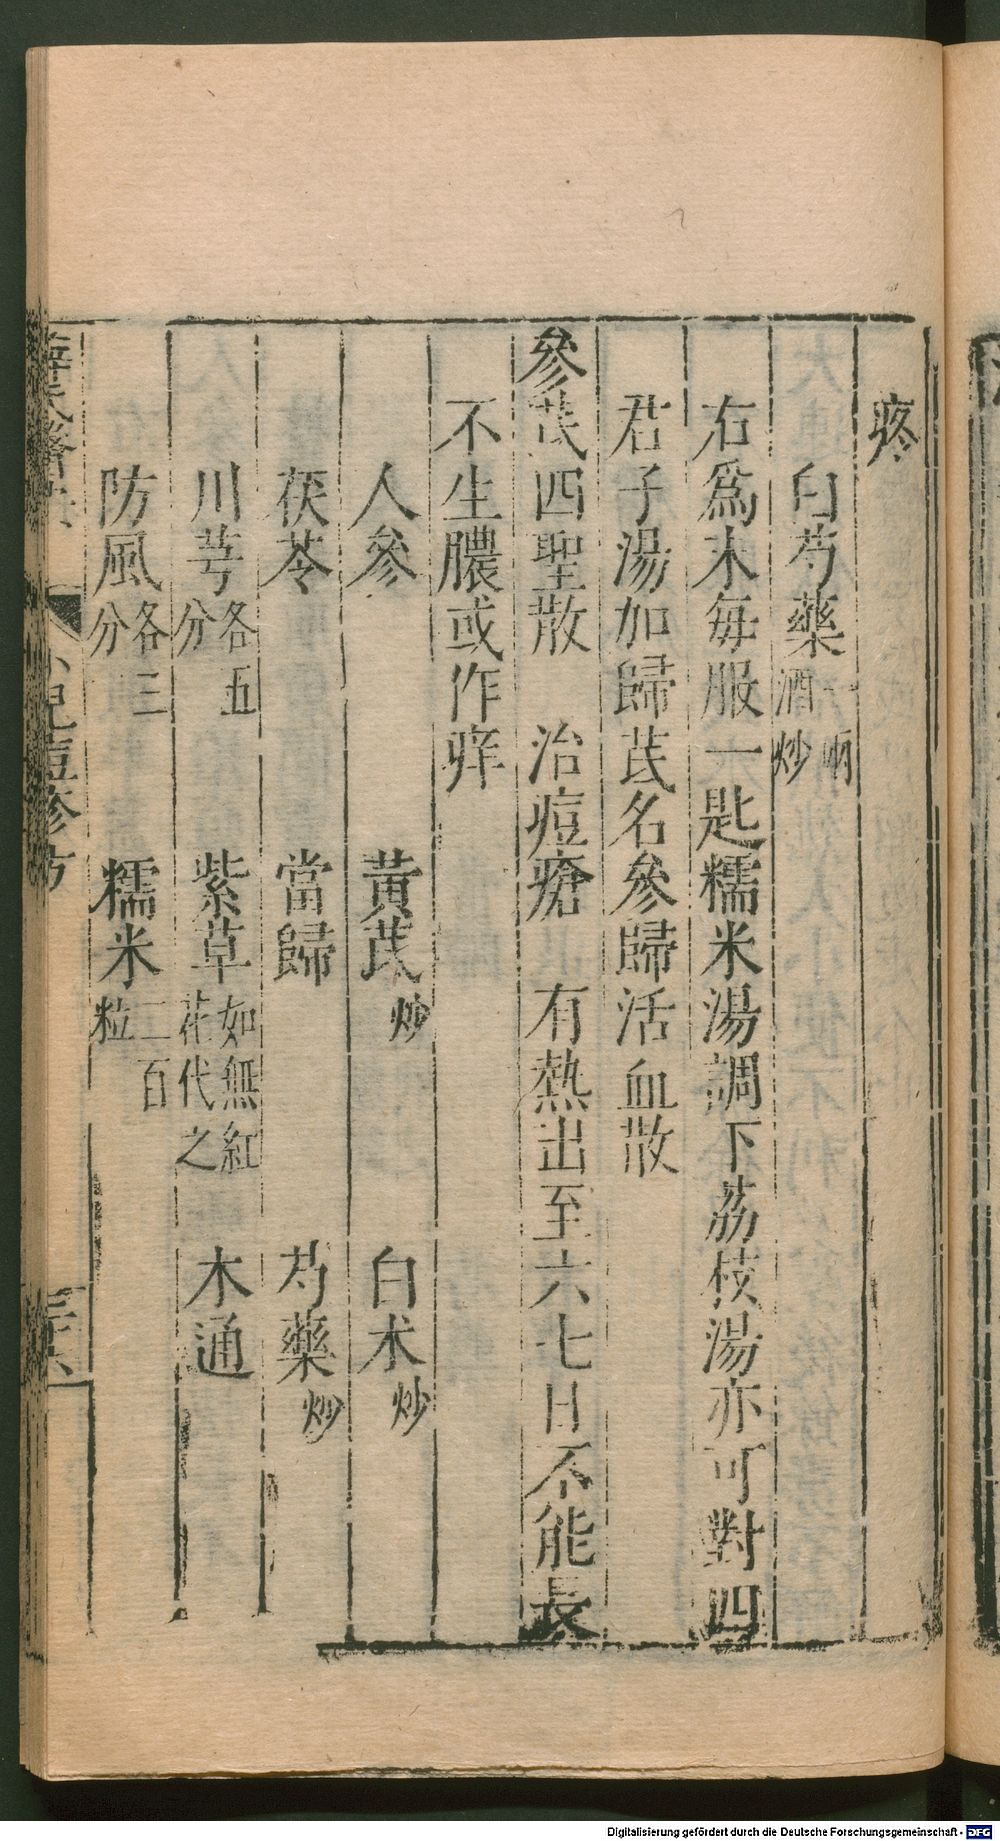 疼
白芍藥一兩酒炒
右爲末每服一匙糯米湯調下荔枝湯亦可對四
君子湯加歸芪名參歸活血散
參芪四聖散 治痘瘡 有熱出至六七日不能長
不生膿或作痒
人參 黃芪炒 白朮炒
茯苓 當歸 芍藥炒
川芎各五分 紫草如無紅花代之 木通
防風各三分 糯米二百粒
小兒痘疹方
Digitalisierung gefördert durch die Deutsche Forschungsgemeinschaft - DFG